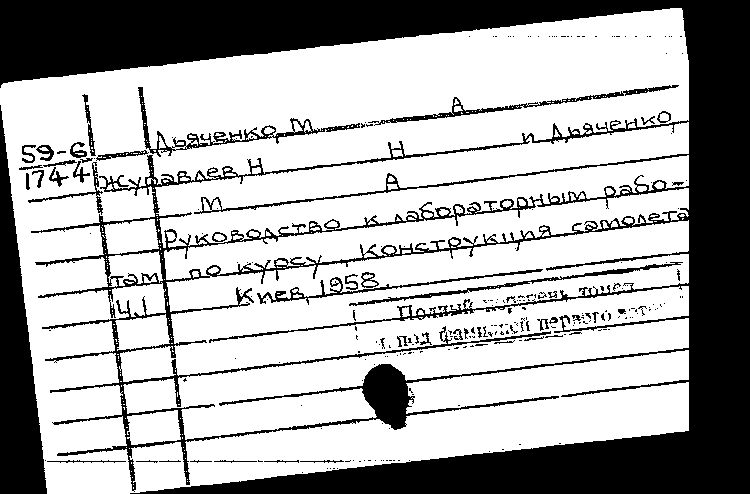 Дьяченко, М А
59-6
174-4
Журавлев, Н Н и Дьяченко,
М А
Руководство к лабораторным рабо-
там по курсу "Конструкция самолета
ч.1 Киев, 1958.
Полный перечень томов
под фамилией первого